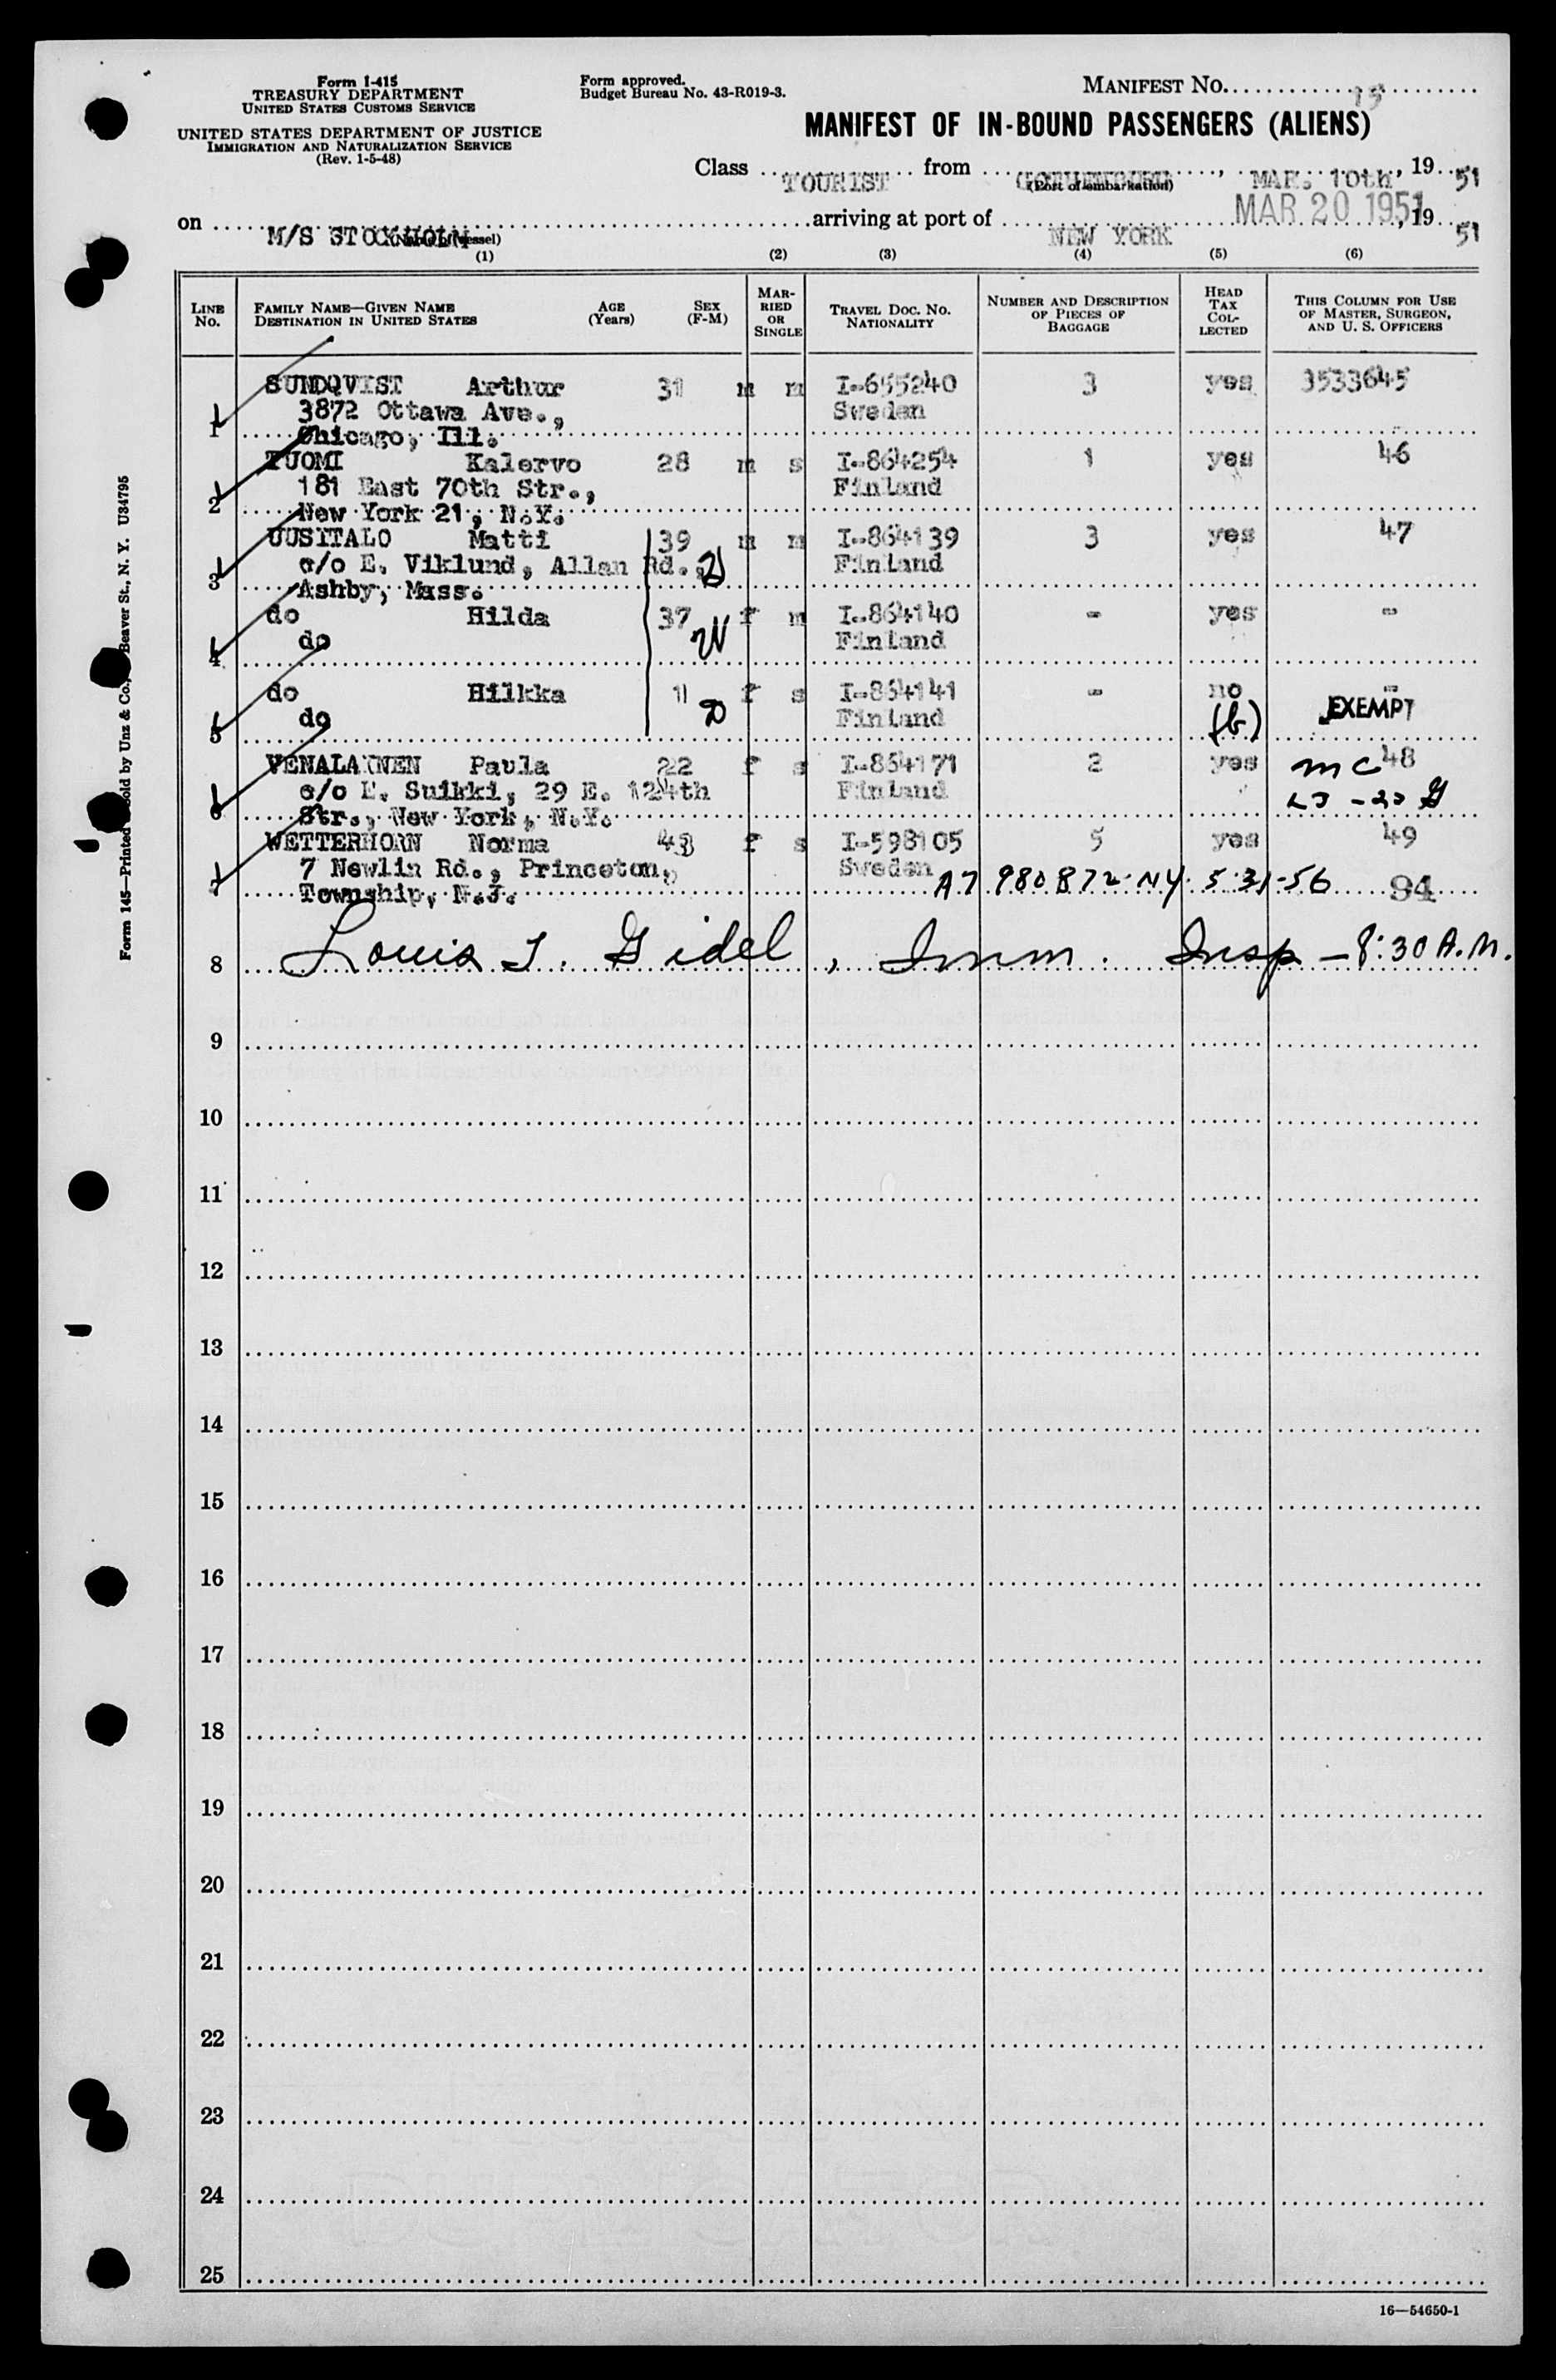 Form I-415
TREASURY DEPARTMENT
UNITED STATES CUSTOMS SERVICE
UNITED STATES DEPARTMENT OF JUSTICE
IMMIGRATION AND NATURALIZATION SERVICE
(Rev. 1-5-48)
Form approved.
Budget Bureau No. 43-R019-3.
MANIFEST NO. 15
MANIFEST OF IN-BOUND PASSENGERS (ALIENS)
Class TOURIST from GOTHENBURG, MAR. 10th, 19 51
(Port of embarkation)
on M/S STOCKHOLM arriving at port of NEW YORK MAR 20 1951, 19 51
(Name of vessel)
(1) (2) (3) (4) (5) (6)
LINE No. FAMILY NAME—GIVEN NAME DESTINATION IN UNITED STATES AGE (Years) SEX (F-M) MARRIED OR SINGLE TRAVEL DOC. NO. NATIONALITY NUMBER AND DESCRIPTION OF PIECES OF BAGGAGE HEAD TAX COLLECTED THIS COLUMN FOR USE OF MASTER, SURGEON, AND U. S. OFFICERS
SUNDQVIST Arthur 31 m m I-655240 3 yes 3533645
3872 Ottawa Ave., Sweden
1 Chicago, Ill.
TUOMI Kalervo 28 m s I-864254 1 yes 46
181 East 70th Str., Finland
2 New York 21, N.Y.
UUSITALO Matti 39 m m I-864139 3 yes 47
c/o E. Viklund, Allan Rd., Finland
3 Ashby, Mass.
do Hilda 37 f m I-864140 - yes -
4 do Finland
do Hilkka 11 f s I-864141 - no -
5 do Finland (b) EXEMPT
VENALAINEN Paula 22 f s I-864171 2 yes mc 48
c/o E. Suikki, 29 E. 124th Finland
6 Str., New York, N.Y.
WETTERHORN Norma 43 f s I-598105 5 yes 49
7 Newlin Rd., Princeton, Sweden
7 Township, N.J. A7 980 872 NY 5-31-56 94
8 Louis I. Gidel, Imm. Insp — 8:30 A.M.
9
10
11
12
13
14
15
16
17
18
19
20
21
22
23
24
25
16—54650-1